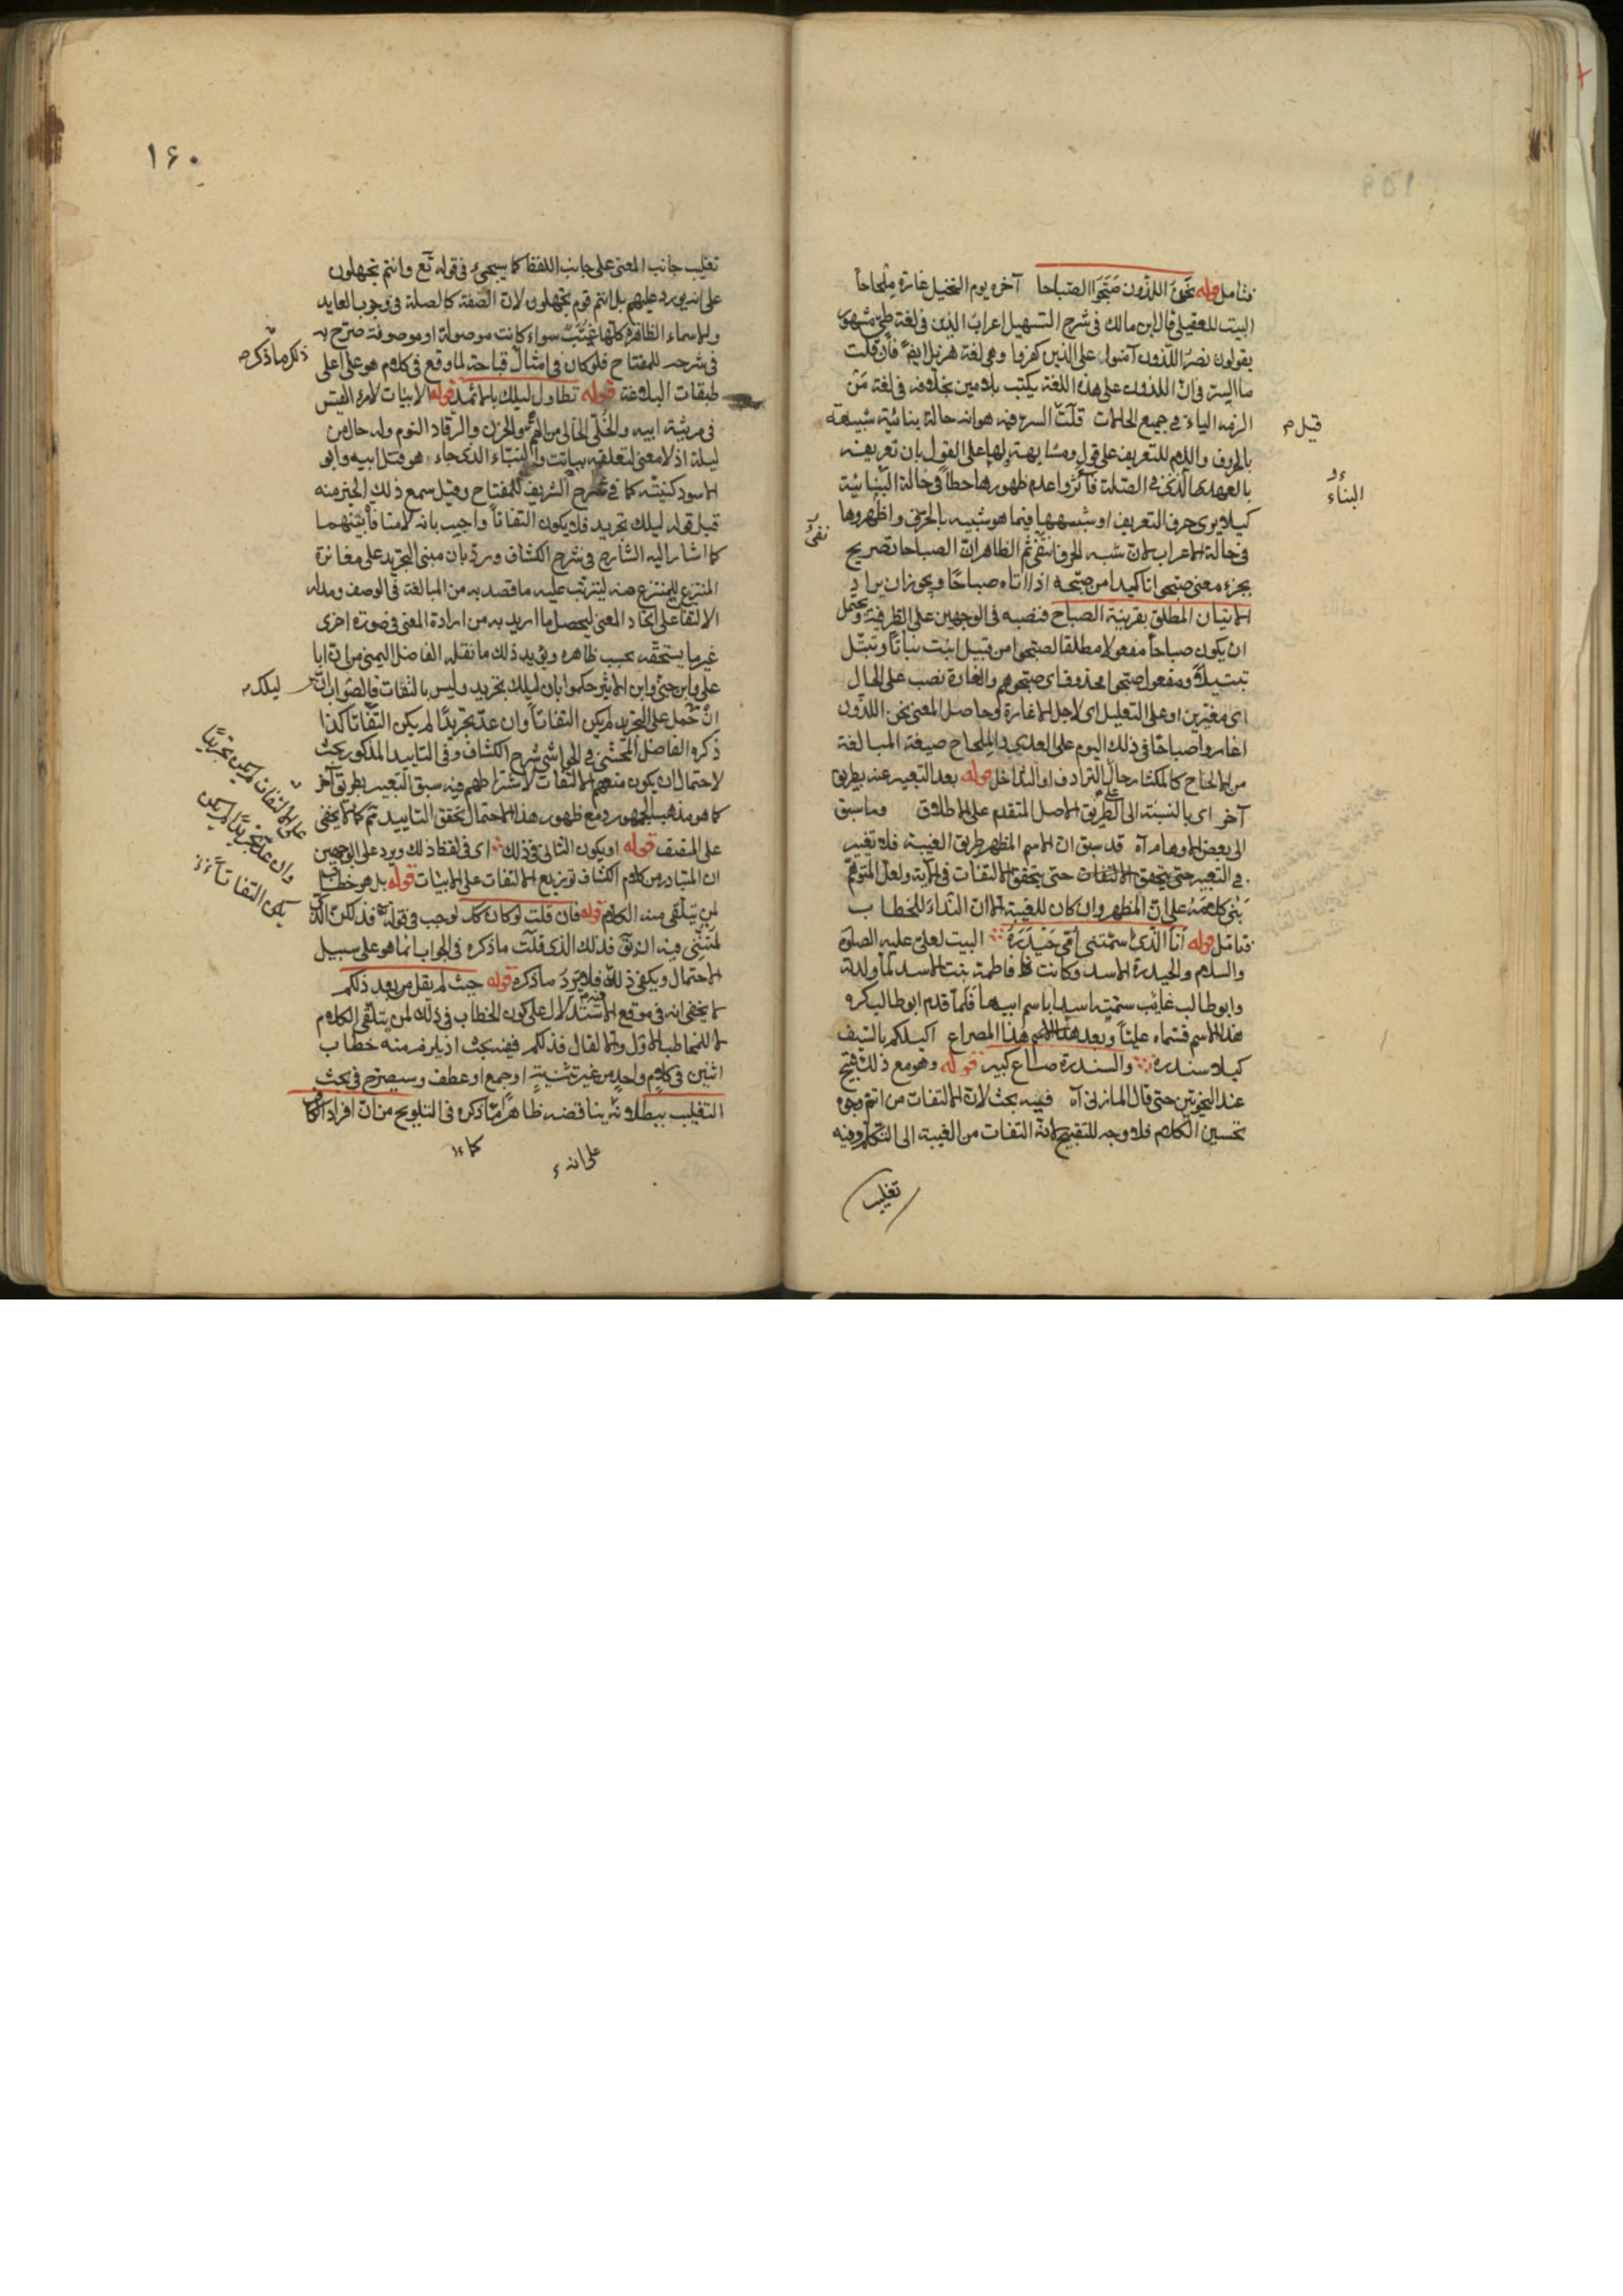 فتأمل قوله نحن اللذون صبحوا الصباحا آخره يوم النخيل غارة ملحاحا
البيت للعقيلي قال ابن مالك في شرح التسهيل اعراب الذين في لغة طي مشهور
يقولون نصر اللذون آمنوا على الذين كفروا وهي لغة هزيل ايضا فان قلت
ما السر في ان اللذون على هذه اللغة يكتب بلامين بخلافه في لغة من
الزمه الياء في جميع الحالات قلت السر فيه هو انه حالة بنائية شبيهة
بالحروف واللام للتعريف على قول ومشابهة لها على القول بان تعريفه
بالعهد الذي في الصلة فآثروا عدم ظهورها خطا في حالة البنائية
كيلا يرى حرف التعريف او شبهها فيما هو شبيه بالحرف واظهروها
في حالة الاعراب لان شبه الحرف انتفى ثم الظاهر ان الصباحا تصريح
بجزء معنى صبحوا تاكيدا من صبحه اذا اتاه صباحا ويجوز ان يراد
الاتيان المطلق بقرينة الصباح فنصبه في الوجهين على الظرفية ويحتمل
ان يكون صباحا مفعولا مطلقا لصبحوا من قبيل انبت نباتا وتبتل
تبتيلا ومفعول صبحوا محذوف اي صبحوهم والغارة نصب على الحال
اي مغيرين او على التعليل اي لاجل الاغارة وحاصل المعنى نحن اللذون
اغاروا صباحا في ذلك اليوم على العدى والملحاح صيغة المبالغة
من الالحاح كالمكثار حال الترادف او التداخل قوله بعد التعبير عنه بطريق
آخر اي بالنسبة الى الطريق الاصل المتقدم على الاطلاق وما سبق
الى بعض الاوهام آه قد سبق ان الاسم المظهر طريق الغيبة فلا تغيير
في التعبير حتى يتحقق الالتفات حتى يتحقق الالتفات في الآية ولعل المتوهم
بنى كلامه على ان المظهر وان كان للغيبة الا ان النداء للخطاب
فتامل قوله انا الذي سمتني امي حيدره البيت لعلي عليه الصلوة
والسلام والحيدرة الاسد وكانت فاطمة بنت الاسد لما ولدته
وابو طالب غائب سمته اسدا باسم ابيها فلما قدم ابو طالب كره
هذا الاسم فسماه عليا وبعد هذا المصراع اكيلكم بالسيف
كيل السندرة والسندرة صاع كبير قوله وهو مع ذلك قبيح
عند النحويين حتى قال المازني آه فيه بحث لان الالتفات من اتم وجوه
تحسين الكلام فلا وجه للتقبيح لانه التفات من الغيبة الى التكلم وفيه
تغليب
قيل م
البناء
نفي
١٦٠
تغليب جانب المعنى على جانب اللفظ كما سيجيء في قوله تع وانتم تجهلون
على انه يورد عليهم بل انتم قوم تجهلون لان الصفة كالصلة في وجوب العايد
والاسماء الظاهرة كلها غيب سواء كانت موصولة او موصوفة صرح به
في شرحه للمفتاح فلو كان في امثال قباحة لما وقع في كلام هو على اعلى
طبقات البلاغة قوله تطاول ليلك بالاثمد قوله الابيات لامرء القيس
في مرثية ابيه والخلي الخالي من الهم والحزن والرقاد النوم وله حال من
ليلة اذ لا معنى لتعلقه ببانت والنباء الذي جاء هو قتل ابيه وابو
الاسود كنيته كما في شرح الشريف للمفتاح وقيل سمع ذلك الخبر منه
قيل قوله ليلك تجريد فلا يكون التفاتا واجيب بانه لا منافاة بينهما
كما اشار اليه الشارح في شرح الكشاف ورد بان مبنى التجريد على مغائرة
المنتزع للمنتزع منه ليترتب عليه ما قصد به من المبالغة في الوصف ومدار
الالتفات على اتحاد المعنى ليحصل ما اريد به من ارادة المعنى في صورة اخرى
غير ما يستحقه بحسب ظاهره ويؤيد ذلك ما نقله الفاضل اليمني من ان ابا
علي وابن جني وابن الاثير حكموا بان ليلك تجريد وليس بالتفات فالصواب ان
ان حمل على التجريد لم يكن التفاتا وان عد تجريدا لم يكن التفاتا كذا
ذكره الفاضل المحشي في الحواشي شرح الكشاف وفي التاييد المذكور بحث
لاحتمال ان يكون منعهم الالتفات لاشتراطهم فيه سبق التعبير بطريق آخر
كما هو مذهب الجمهور ومع ظهور هذا الاحتمال تحقق التاييد ثم كما لا يخفى
على المنصف قوله او يكون الثاني في ذلك اي في لفظ ذلك ويرد على الوجهين
ان المتبادر من كلام الكشاف توزيع الالتفات على الابيات قوله بل هو خطاب
لمن يتلقى منه الكلام قوله فان قلت لو كان كذ لوجب في قوله فذلكن الذي
لمتنني فيه ان يق فذلك الذي قلت ما ذكره في الجواب انما هو على سبيل
الاحتمال ويكفي ذلك فلا يرد ما ذكره قوله حيث لم يقل من بعد ذلكم
لا يخفى انه في موقع الاستدلال على كون الخطاب في ذلك لمن يتلقى الكلام
لا للمخاطب الاول والا لقال فذلكم فيه بحث اذ يلزم منه خطاب
اثنين في كلام واحد من غير تثنية او جمع او عطف وسيصرح في بحث
التغليب ببطلانه يناقضه ظاهرا ما ذكره في التلويح من ان افراد الكاف
ذكر ما ذكره
ليلك
على الالتفات لم يكن تجريدا
وان عد تجريدا لم يكن
يكن التفاتا
على انه
كما